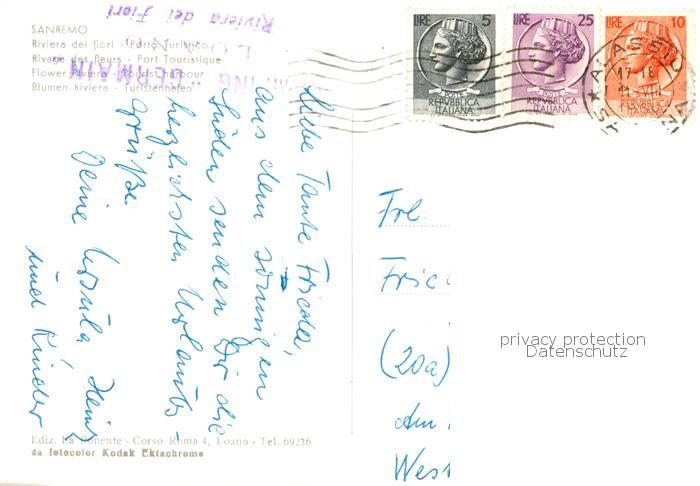 SANREMO
Riviera dei fiori - Porto Turistico
Rivage des fleurs - Port Touristique
Flower Riviera - Tourist harbour
Blumen Riviera - Turistenhofen
Riviera dei Fiori
LIRE 5
POSTE
REPVBBLICA
ITALIANA
LIRE 25
POSTE
REPVBBLICA
ITALIANA
LIRE 10
REPVBBLICA
ITALIANA
ALASSIO
17 18
Liebe Tante Frieda,
aus dem sonnigen
Süden senden Dir die
herzlichsten Urlaubs-
grüße
Deine Ursula, Heinz
und Kinder
Frl.
Fried
(20a)
Am
West
privacy protection
Datenschutz
Ediz. La Ponente - Corso Roma 4, Loano - Tel. 69236
da fotocolor Kodak Ektachrome